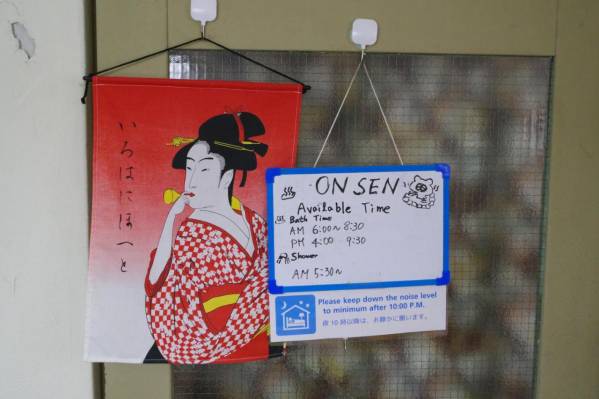 いろはにほへと
ONSEN
Available Time
Bath Time
AM 6:00~8:30
PM 4:00 9:30
Shower
AM 5:30~
Please keep down the noise level
to minimum after 10:00 P.M.
夜10時以降は、お静かに願います。